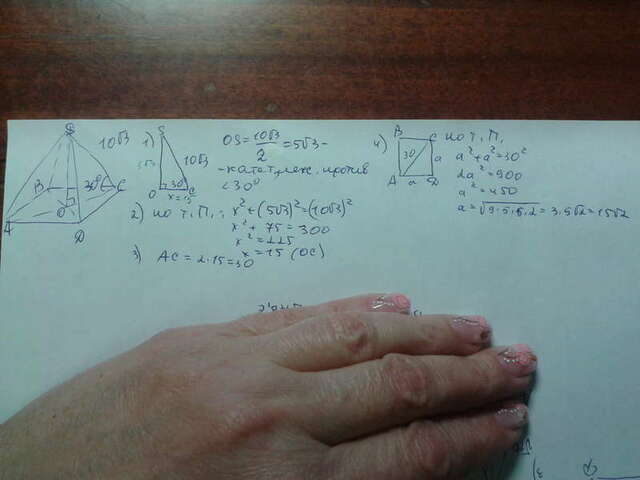 S
10√3
B
30°
C
O
A
D
1) S
5√3
10√3
30°
O
C
x=15
OS = 10√3/2 = 5√3 -
- катет, леж. против
<30°
2) по т. П.: x² + (5√3)² = (10√3)²
x² + 75 = 300
x² = 225
x = 15 (OC)
3) AC = 2·15 = 30
4) B
C
30
a
A
a
D
по т. П.
a² + a² = 30²
2a² = 900
a² = 450
a = √9·5·5·2 = 3·5√2 = 15√2